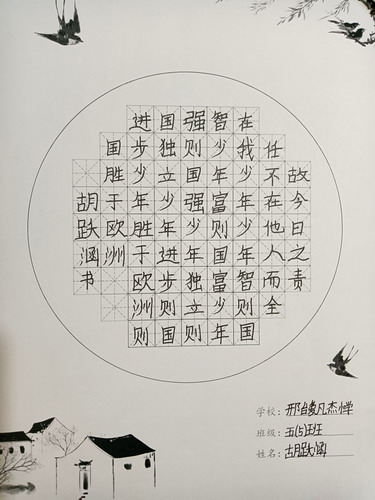 故今日之责
任不在他人而全
在我少年少年智则国
智少年富则国富少年
强则国强少年独立则
国独立少年进步则国
进步少年胜于欧洲则
国胜于欧洲
胡跃涵书
学校：邢台
班级：五(5)班
姓名：胡跃涵